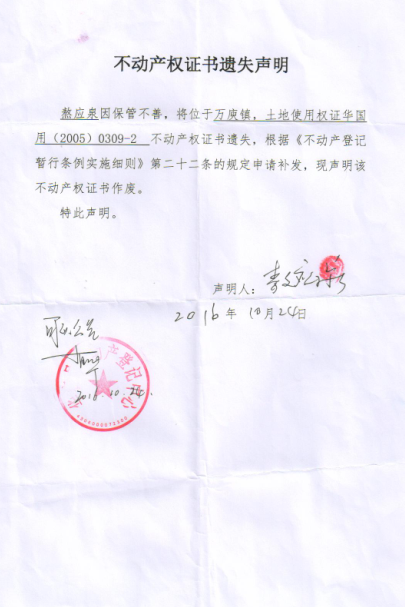 不动产权证书遗失声明
愁应泉因保管不善，将位于万庾镇，土地使用权证华国
用（2005）0309-2 不动产权证书遗失，根据《不动产登记
暂行条例实施细则》第二十二条的规定申请补发，现声明该
不动产权证书作废。
特此声明。
声明人：
2016年 10月24日
2016.10.24.
产登记中心